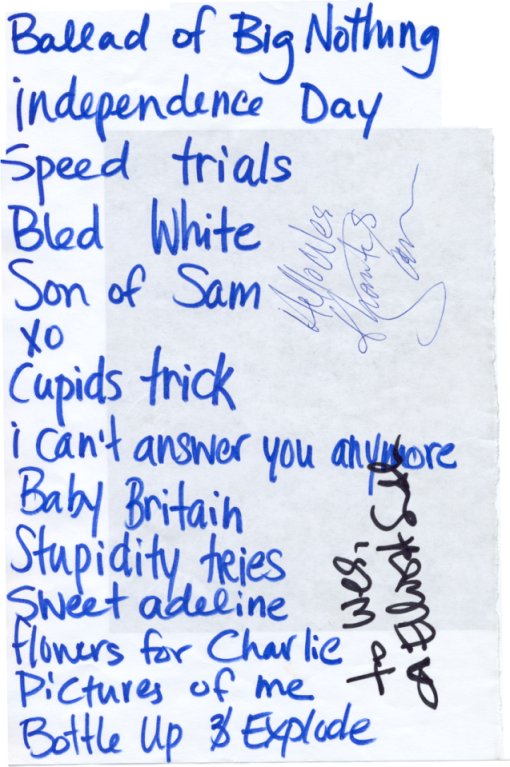 Ballad of Big Nothing
independence Day
Speed trials
Bled White
Son of Sam
XO
Cupids trick
i can't answer you anymore
Baby Britain
Stupidity tries
Sweet adeline
flowers for Charlie
Pictures of me
Bottle Up & Explode
Hello Wes
Thanks
Sam
to Wes,
Elliott Smith